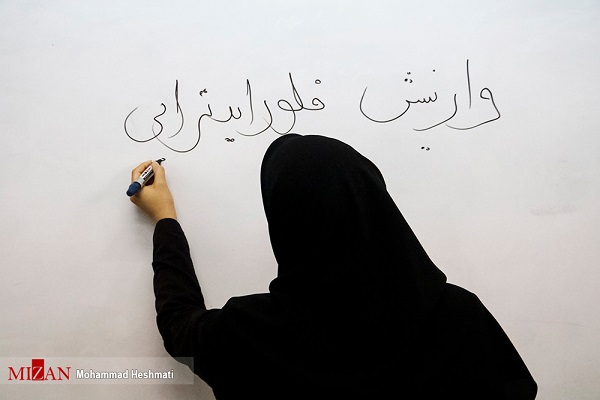 وارنیش فلوراید تراپی
MIZAN
Mohammad Heshmati